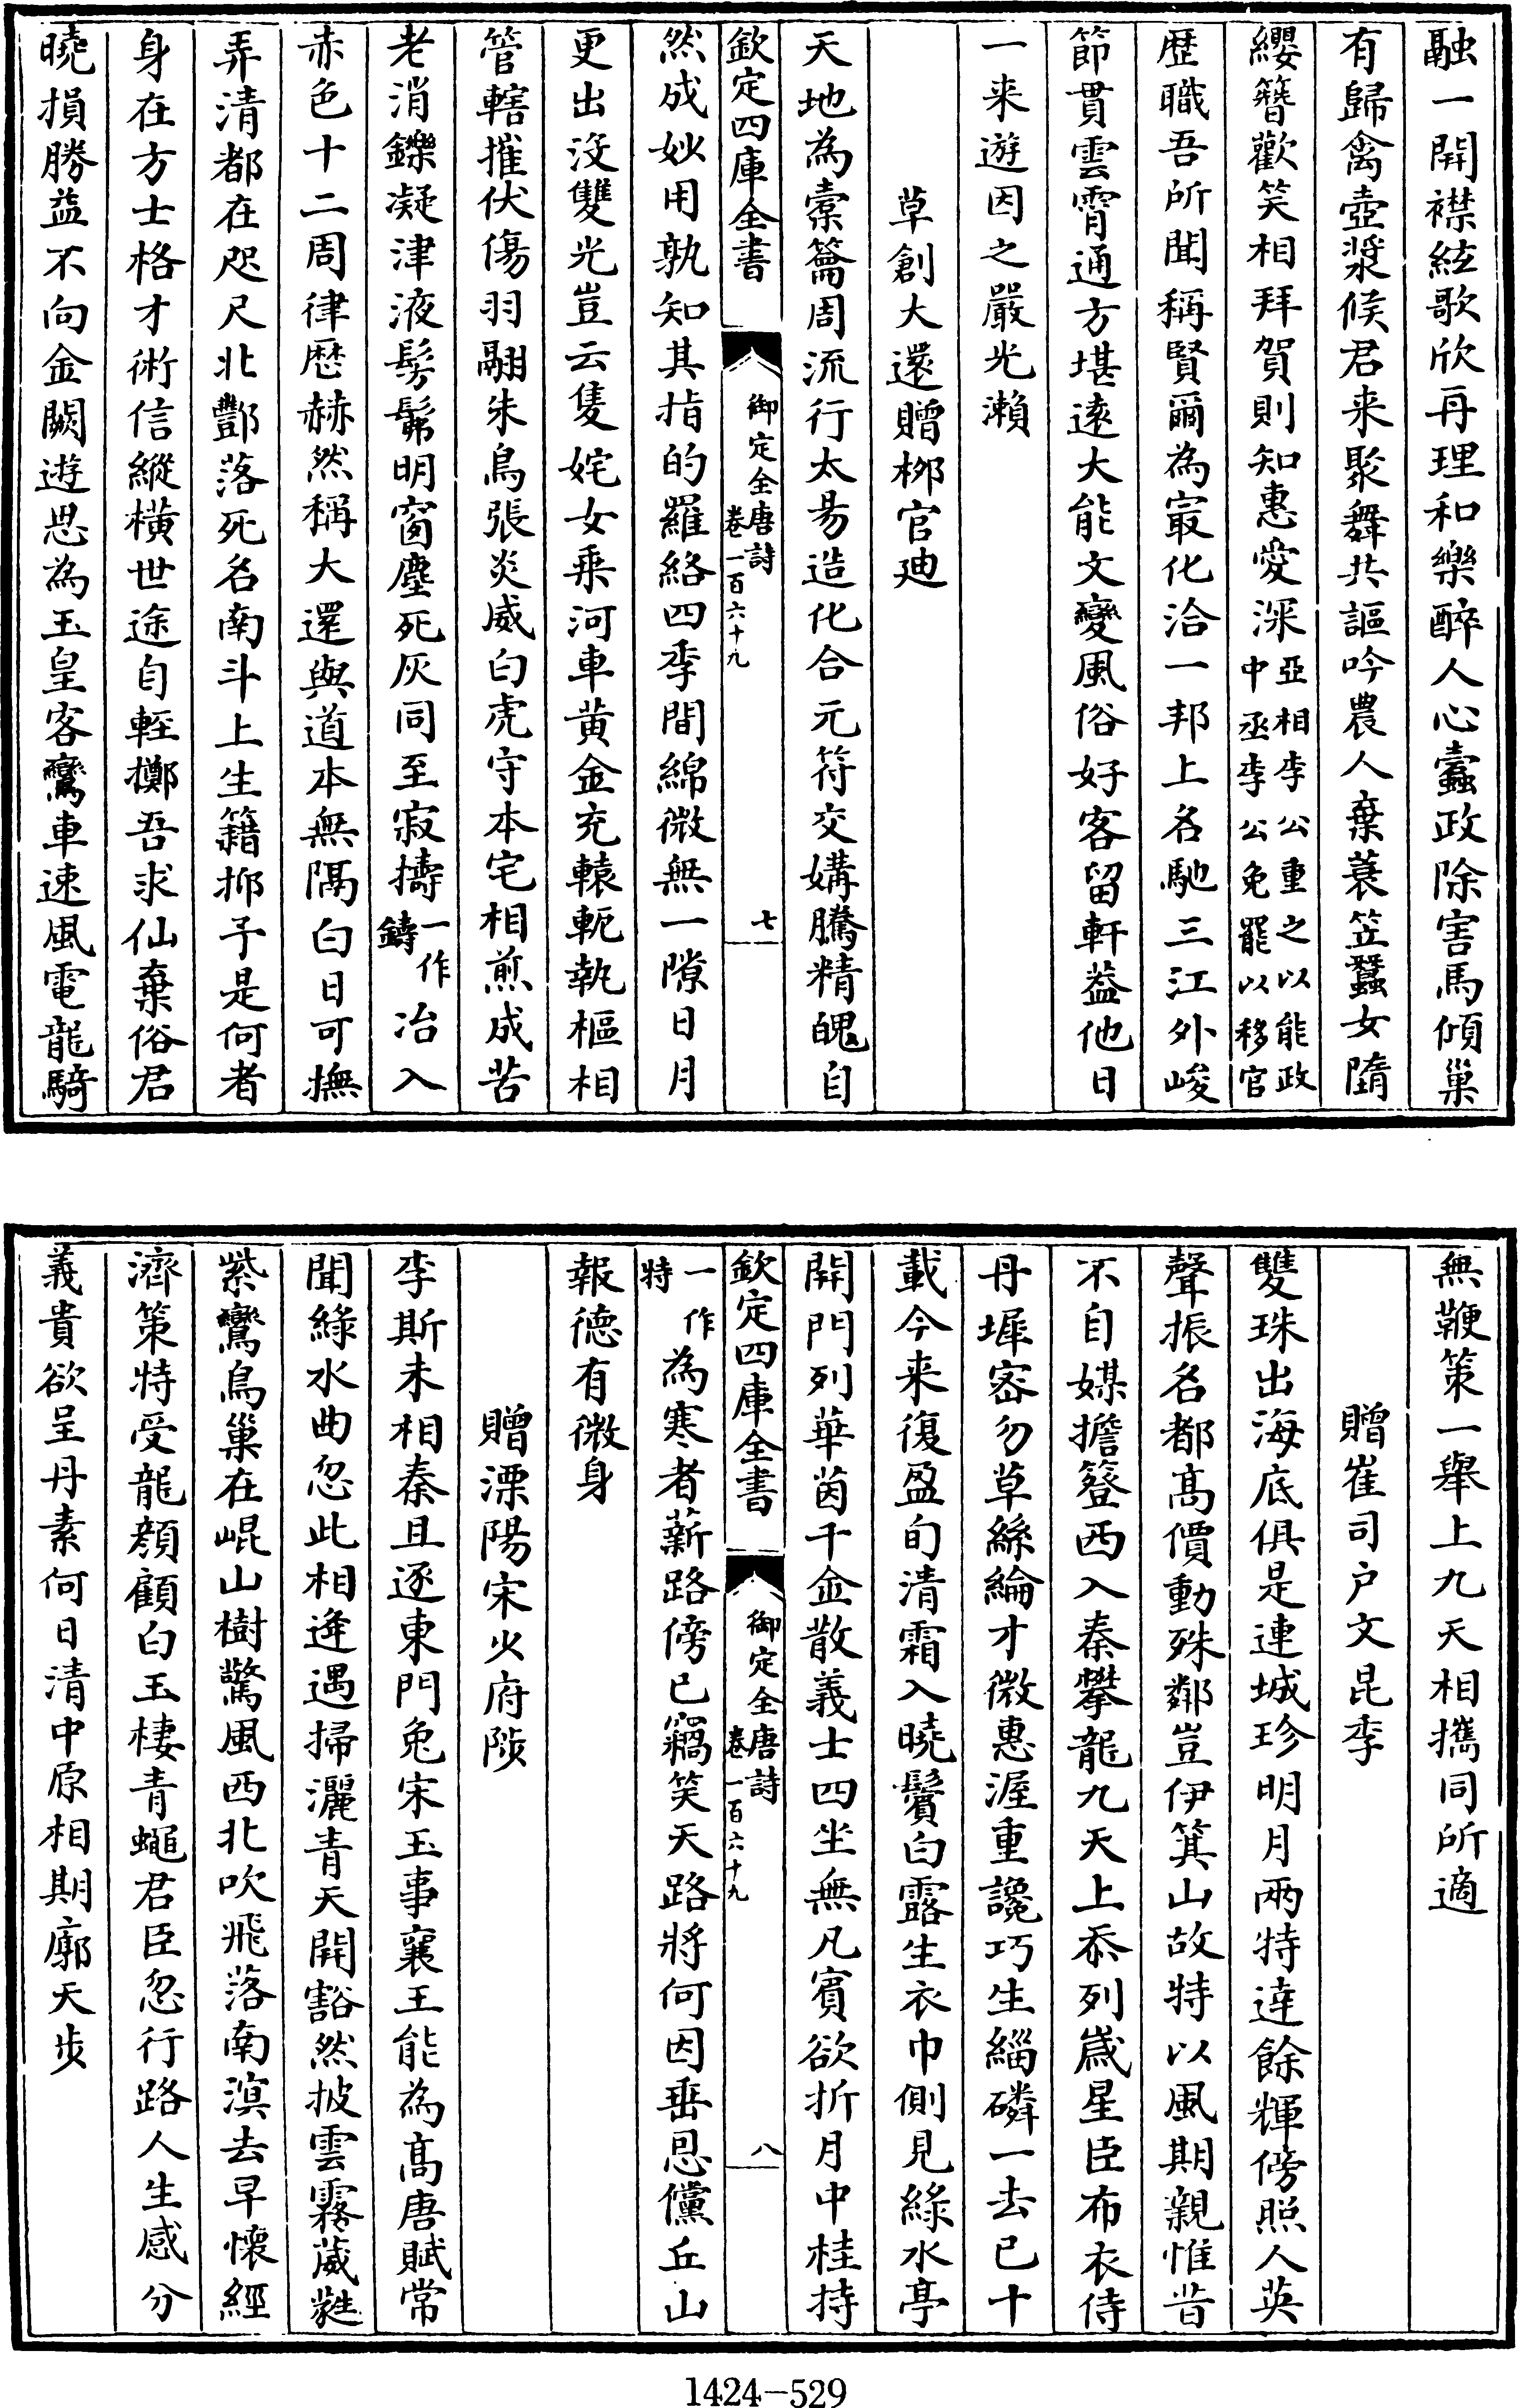 融一開襟絃歌欣再理和樂醉人心蠧政除害馬傾巢
有歸禽壺漿候君来聚舞共謳吟農人棄蓑笠蠶女墮
纓簪歡笑相拜賀則知惠愛深亞相李公重之以能政中丞李公免罷以移官
歴職吾所聞稱賢爾為㝡化洽一邦上名馳三江外峻
節貫雲霄通方堪逺大能文變風俗好客留軒葢他日
一来遊因之嚴光瀨
草創大還贈栁官迪
天地為橐籥周流行太昜造化合元符交媾騰精魄自
欽定四庫全書
御定全唐詩
卷一百六十九
七
然成妙用孰知其指的羅絡四季間綿微無一隙日月
更出沒雙光豈云隻姹女乗河車黄金充轅軛執樞相
管轄摧伏傷羽翮朱鳥張炎威白虎守本宅相煎成苦
老消鑠凝津液髣髴明窗塵死灰同至寂擣一作鑄冶入
赤色十二周律歴赫然稱大還與道本無隔白日可撫
弄清都在咫尺北酆落死名南斗上生籍抑予是何者
身在方士格才術信縱橫世途自輕擲吾求仙棄俗君
曉損勝益不向金闕遊思為玉皇客鸞車速風電龍騎
無鞭策一舉上九天相攜同所適
贈崔司户文昆季
雙珠出海底俱是連城珍明月兩特達餘輝傍照人英
聲振名都髙價動殊鄰豈伊箕山故特以風期親惟昔
不自媒擔簦西入秦攀龍九天上忝列嵗星臣布衣侍
丹墀宻勿草絲綸才微惠渥重讒巧生緇磷一去已十
載今来復盈旬清霜入曉鬢白露生衣巾側見緑水亭
開門列華茵千金散義士四坐無凡賓欲折月中桂持
欽定四庫全書
御定全唐詩
卷一百六十九
八
一作特為寒者薪路傍已竊笑天路將何因垂恩儻丘山
報德有微身
贈溧陽宋少府陟
李斯未相秦且逐東門兔宋玉事襄王能為髙唐賦常
聞緑水曲忽此相逄遇掃灑青天開豁然披雲霧葳蕤
紫鸞鳥巢在崐山樹驚風西北吹飛落南溟去早懷經
濟策特受龍顔顧白玉棲青蠅君臣忽行路人生感分
義貴欲呈丹素何日清中原相期廓天步
1424-529